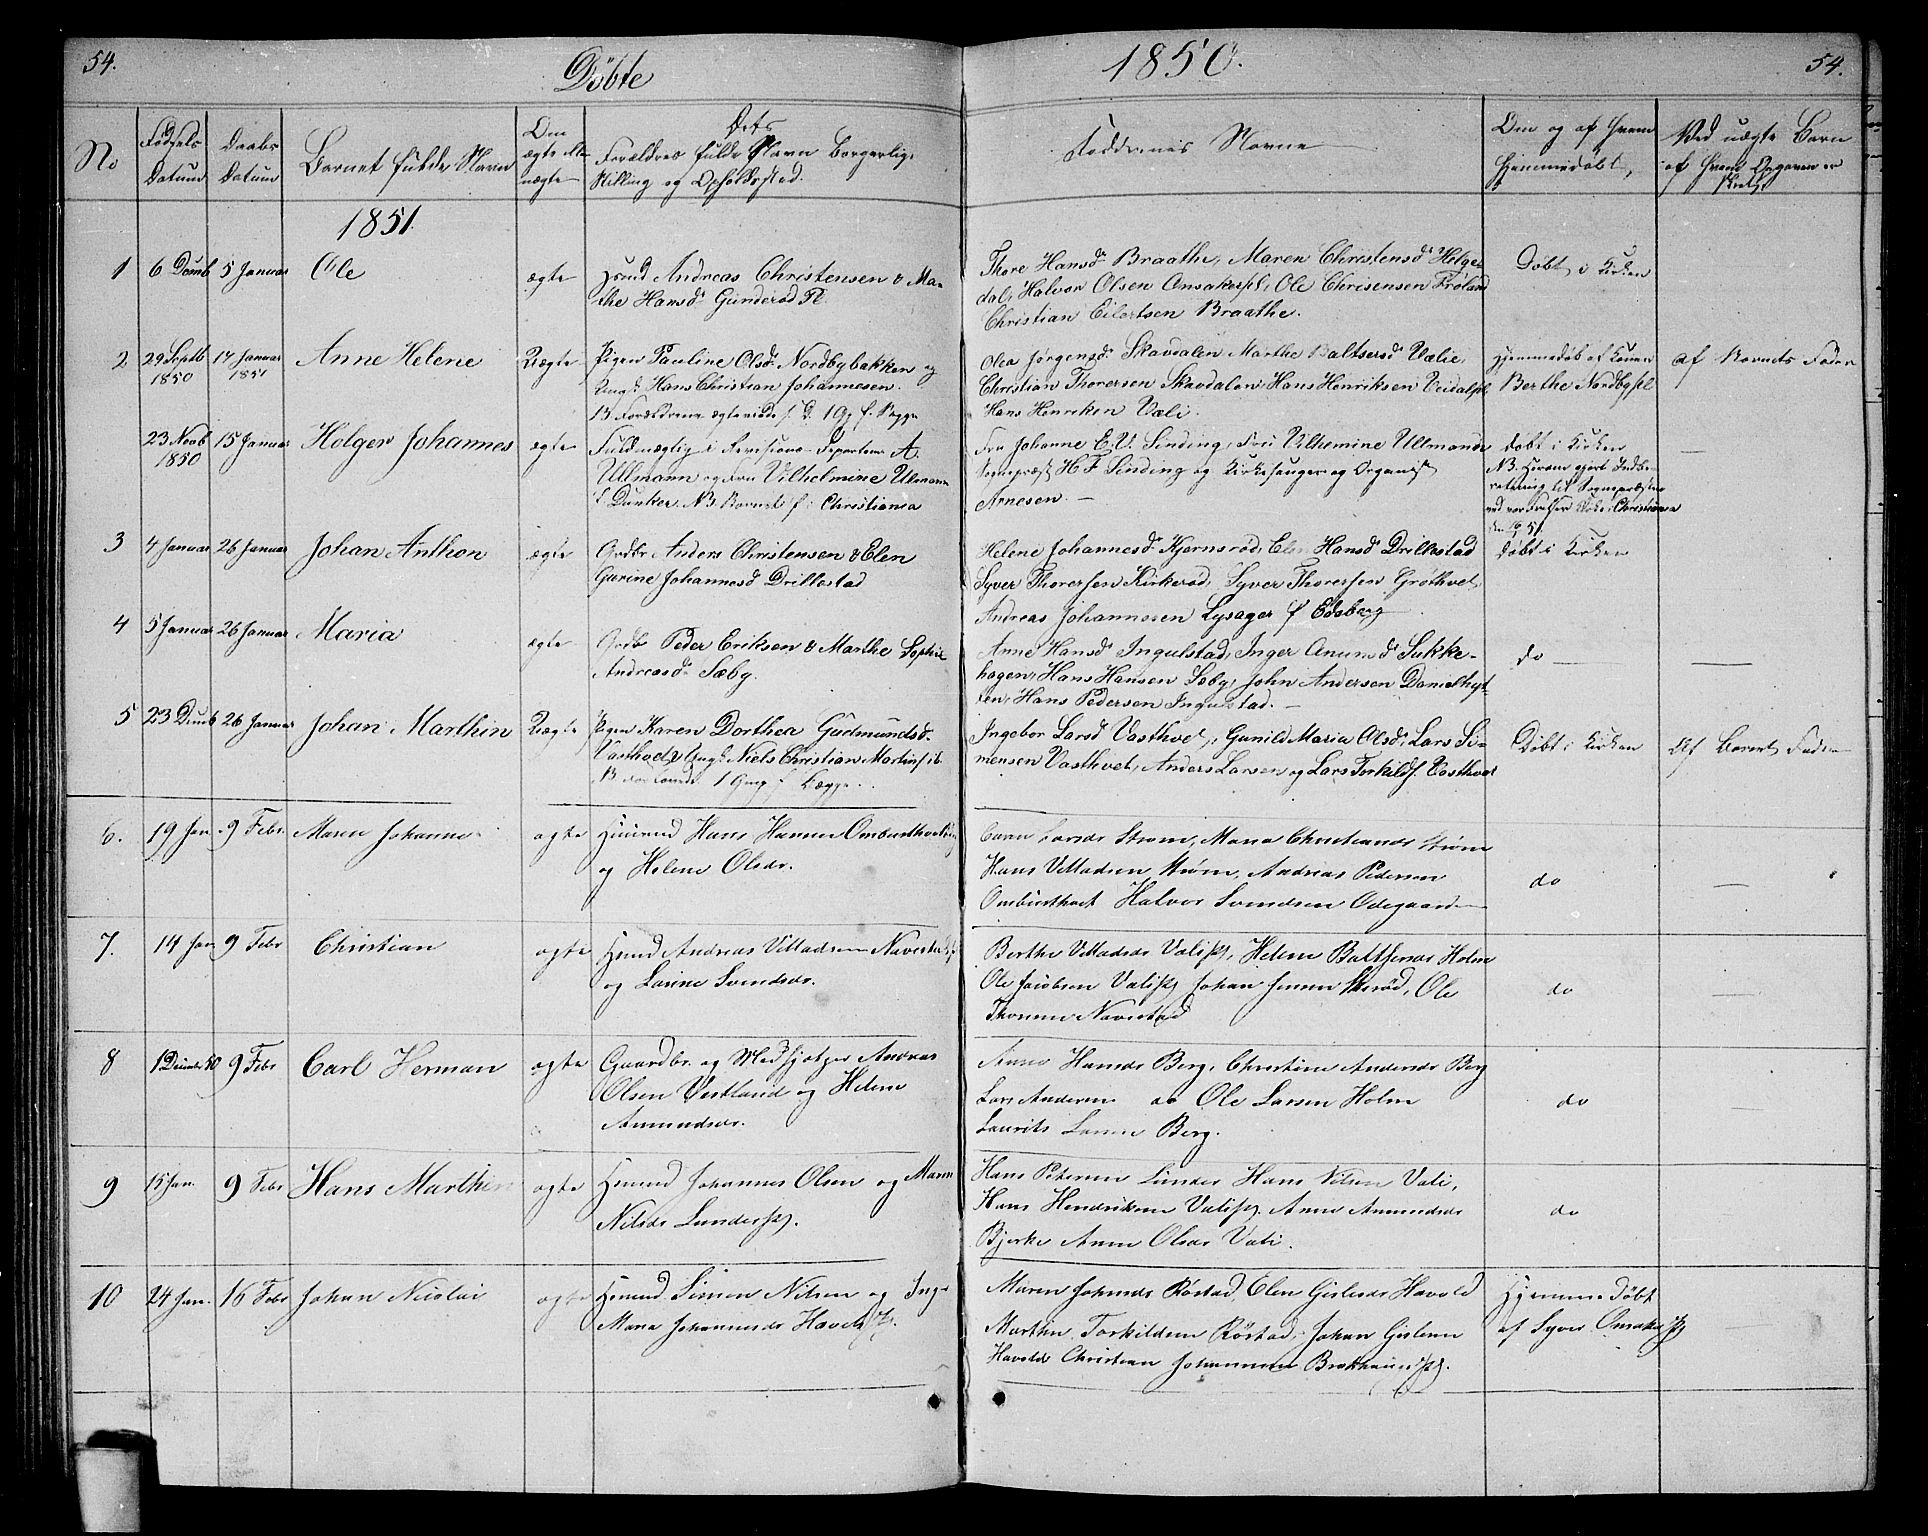 54.
Döbte
1850.
54.
No
Fødsels Datum
Daabs Datum
Barnets fulde Navn
Om ægte eller uægte
Dets Forældres fulde Navn Borgerlige Stilling og Opholdssted.
Faddernes Navne
Om og af hvem hjemmedøbt,
Ved uægte Barn af hvem Opgaven er skeet
1851.
1 6 Decmb 5 Januar Ole ægte Huusmd Andreas Christensen & Ma-
the Hansd. Gunderød Pl.
Thore Hansd. Braathe, Maren Christensd. Helge-
dal, Halvor Olsen Omsakerpl, Ole Chrisensen Frøland
Christian Eilertsen Braathe.
Døbt i Kirken
2 29 Septb 1850 17 Januar 1851 Anne Helene Uægte Pigen Pauline Olsd. Nordbybakken og
Ungk. Hans Christian Johannesen.
B. Forældrene 1 G. f. Begge
Olea Jørgensd. Skavdalen Marthe Baltsersd. Vælie,
Christian Thoresen Skavdalen, Hans Henriksen
Hans Henriken Væli.
Hjemmedøb af Konen
Berthe Nordbypl
af Barnets Fader
23 Novb 1850 15 Januar Holger Johannes ægte Fuldmægtig i Revisions Departem. A.
Ullmann og Fru Vilhelmine Ulmann
f. Dunker. NB. Barnet f. i Christiania
Fru Johanne E. V. Sinding, Fru Vilhelmine Ullmann
H F Sinding og Kirkesanger og Organist
Arnesen. —
Døbt i Kirken
NB. Herom gjort Indbe-
retning til Sognepræsten
ved vor Frelsers Kirke i Christiania
—
3 4 Januar 26 Januar Johan Anthon ægte Grdbr Anders Christensen & Elen
Gurine Johannesd. Drillestad
Helene Johannesd. Kjernsrød, Elen Hansd. Drillestad
Syver Thoressen Kirkerød, Syver Thoressen Grøthvet,
Andreas Johannesen Lysager f Edsberg
Døbt i Kirken
4 5 Januar 26 Januar Maria ægte Grdbr Peder Eriksen & Marthe Sophie
Andreasd. Sæby.
Anne Hansd. Ingulstad, Inger Anum d. Sukke-
hagen, Hans Hansen Sæby, John Andersen Danielhyt
ten, Hans Pedersen Ingulstad. —
do —
—
5 23 Decmb 26 Januar Johan Marthin Uægte Pigen Karen Dorthea Gudmundsd.
Vasthvet, Ungk. Niels Christian Martins
1 Gang f Begge.
Ingebor Larsd. Vasthvet, Gunild Maria Olsd., Lars Si-
mensen Vasthvet, Anders Larsen og Lars Torkilds. Vasthvet
Døbt i Kirken
Af Barnets Fader
6. 19 Jan. 9 Febr. Maren Johanne ægte Huusmd Hans Hansen Ombusthvet
og Helene Olsdr.
Larsdr Strøm, Maria Christiansdr Strøm
Hans Villadsen Strøm, Andreas Pedersen
Ombusthvet Halvor Svendsen Odegaard
do
—
7. 14 Jan 9 Febr Christian ægte Huusmd Andreas Villadsen Navestad
og Lovine Svendsdr.
Berthe Villadsdr Valipl, Helene Baltsersdr Holm
Ole Jacobsen Valipl, Johan Jensen Ole
Navestad
do
—
8 1 December 50 9 Febr Carl Herman ægte Gaardbr. og Medhjelper Andreas
Olsen Vestland og Helene
Amundsdr.
Anne Hansdr Berg, Christine Andersdr Berg
Lars Andersen do Ole Larsen Holm
Laurits Larsen Berg.
do
—
9 15 Jan. 9 Febr Hans Marthin ægte Huusmd Johannes Olsen og Maren
Nilsdr Lunderpl.
Hans Petersen Lunder Hans Nilsen Vali,
Hans Hendriksen Valipl, Anne Amundsdr
Bjerke Anne Olsdr Vali.
do
—
10 24 Jan. 16 Febr Johan Nicolai ægte Huusmd Simen Nilsen og Inge
Maria Johannesdr Havoldpl.
Maren Johnsdr Røstad, Elen Gislesdr Havold
Marthin Torkildsen Røstad, Johan Gislesen
Havold Christian Johannesen
Hjemmedøbt
af Syver Omsakerpl